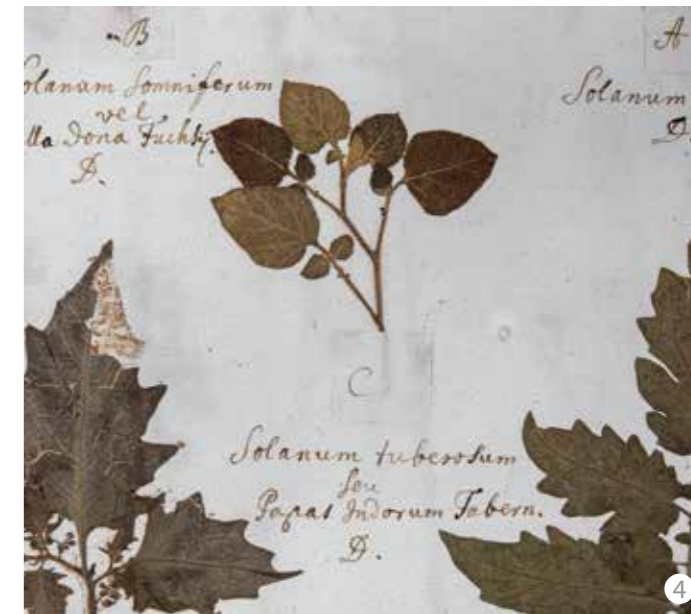 B
olanum Somniferum
vel
lla Dona Fuchsij.
D.
A
Solanum
D.
C
Solanum tuberosum
seu
Papas Indorum Tabern.
D.
4